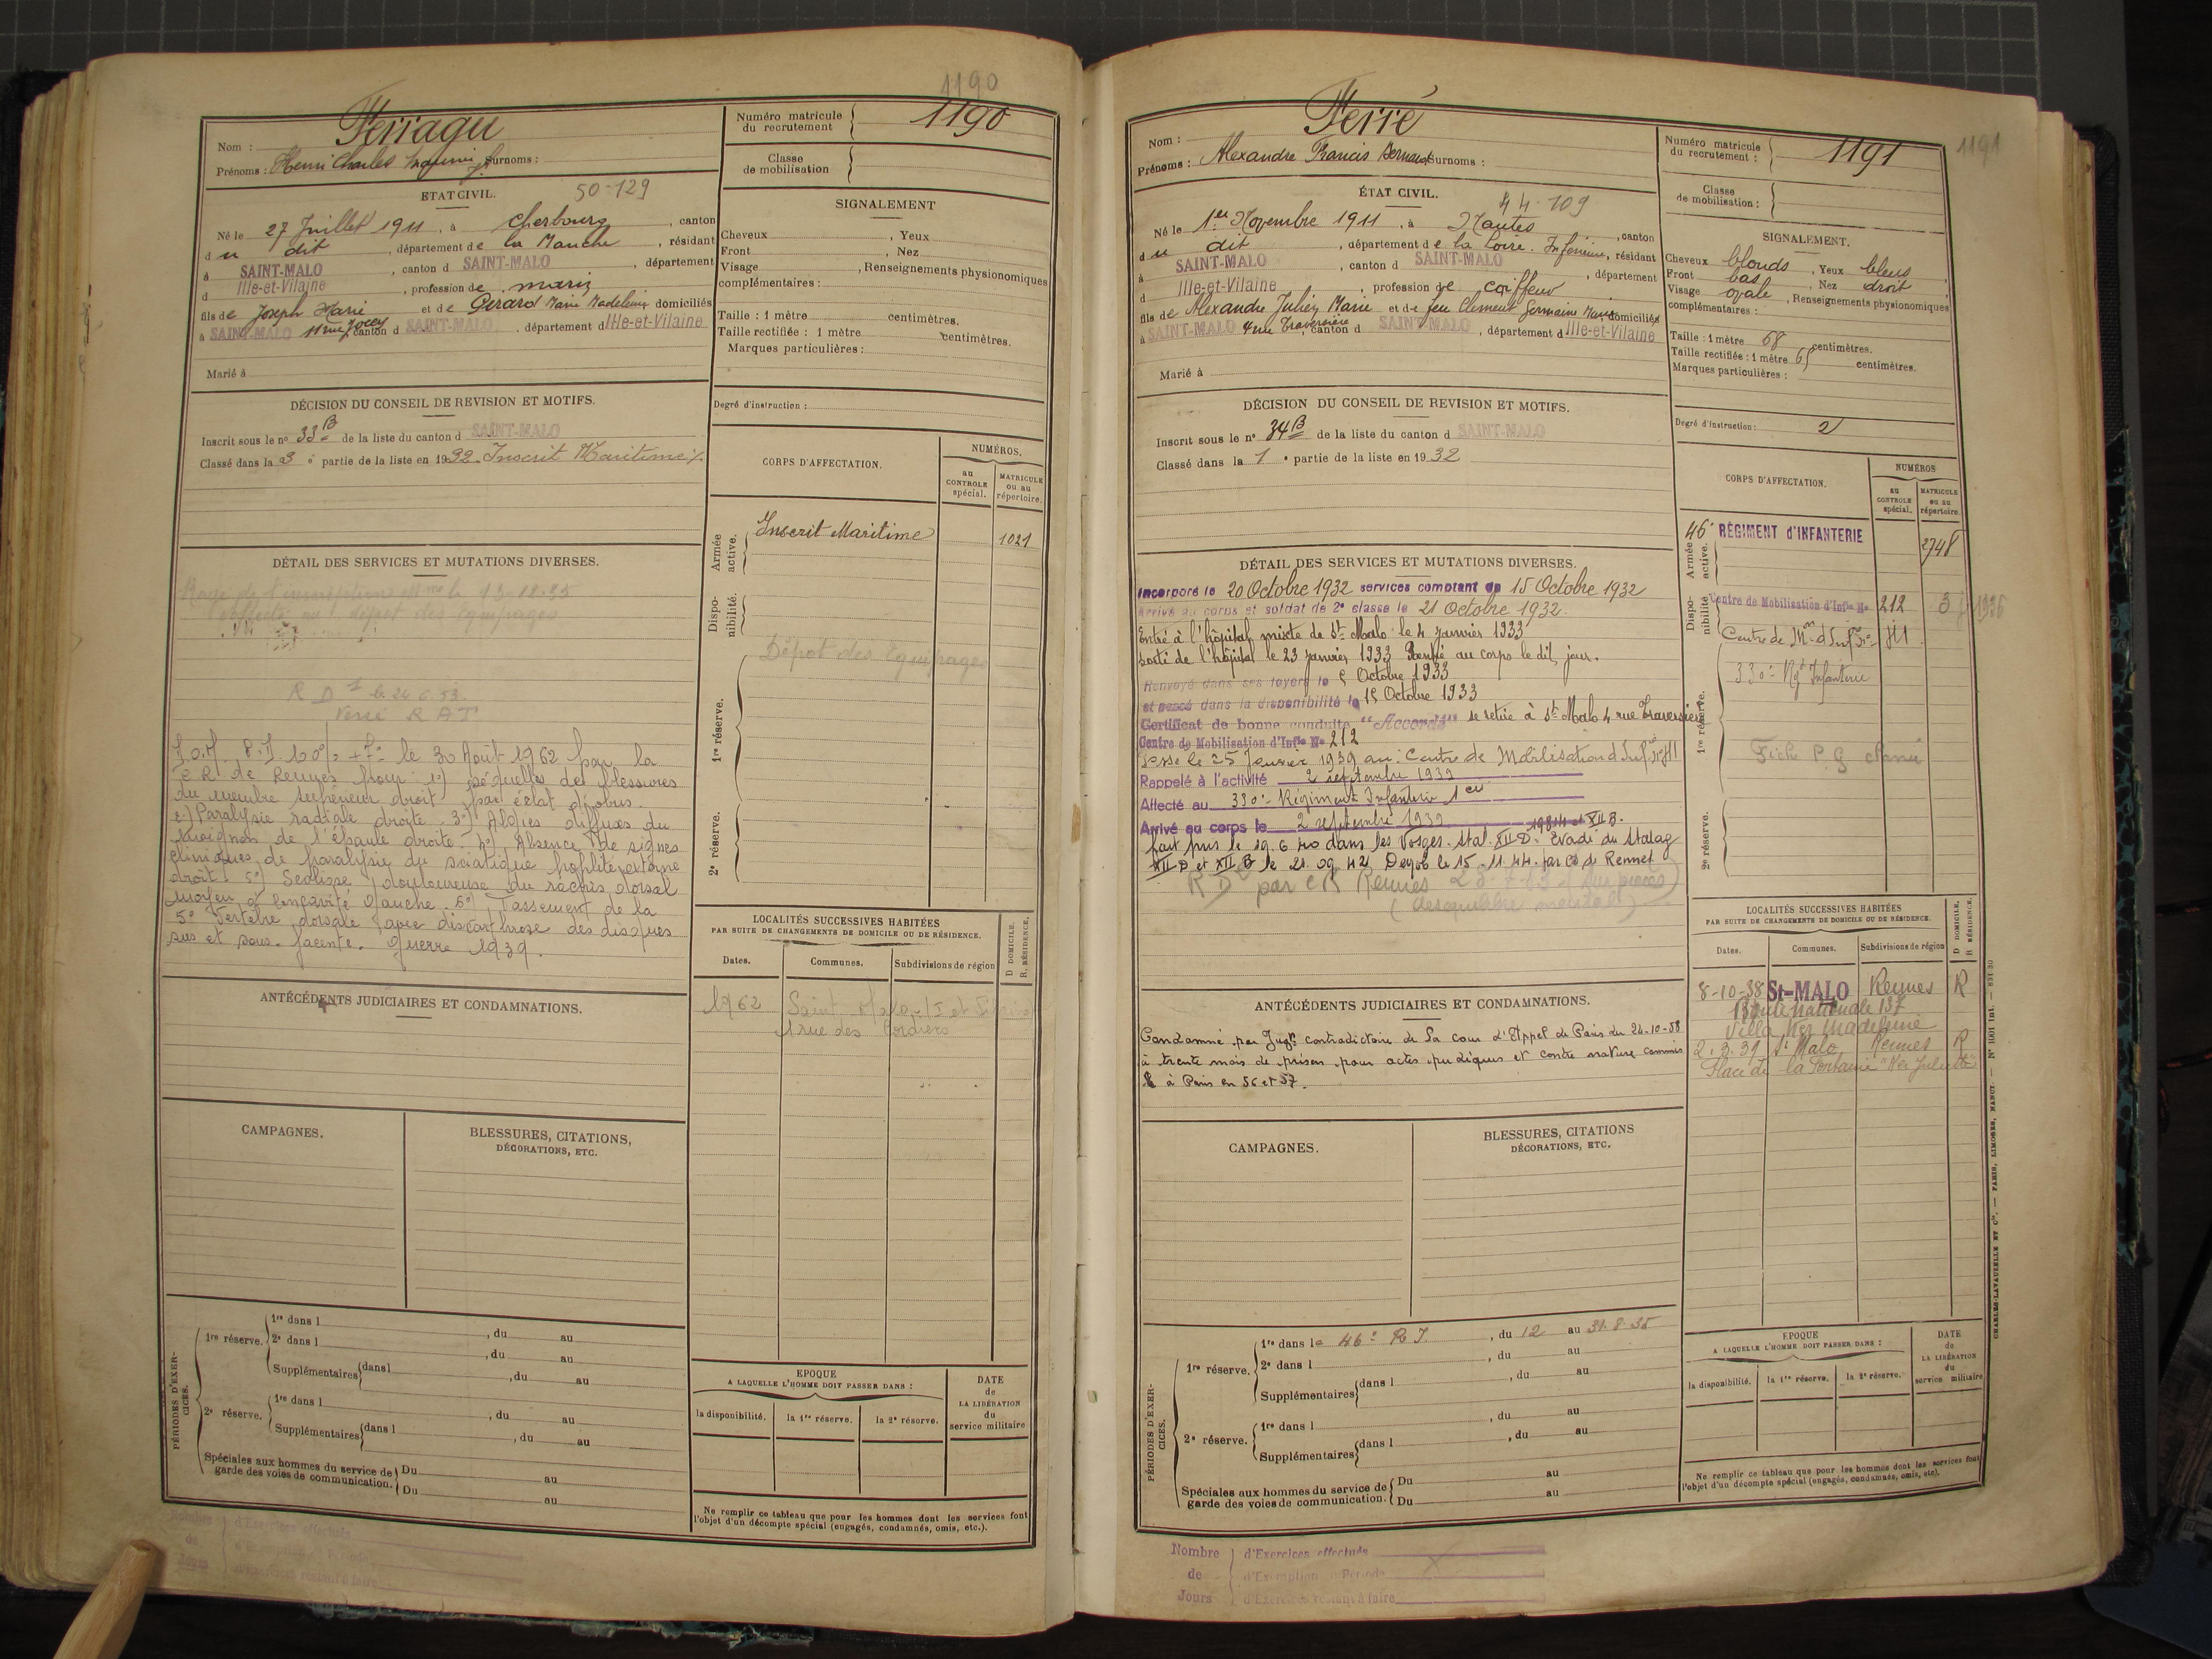 1190
Nom : Ferragu
Prénoms : Henri Charles Surnoms :
Numéro matricule du recrutement 1190
Classe de mobilisation
ETAT CIVIL.
50-129
Né le 27 Juillet 1911, à Cherbourg, canton
du dit, département de la Manche, résidant
à SAINT-MALO, canton d SAINT-MALO, département
d Ille-et-Vilaine, profession de marin
fils de Joseph Marie et de Gérard Marie Madeleine domiciliés
à SAINT-MALO 11 rue canton d SAINT-MALO, département d Ille-et-Vilaine
Marié à
SIGNALEMENT
Cheveux , Yeux
Front , Nez
Visage , Renseignements physionomiques
complémentaires :
Taille : 1 mètre centimètres.
Taille rectifiée : 1 mètre centimètres.
Marques particulières :
Degré d'instruction :
DÉCISION DU CONSEIL DE REVISION ET MOTIFS.
Inscrit sous le nº 33 B de la liste du canton d SAINT-MALO
Classé dans la 3 e partie de la liste en 1932. Inscrit Maritime
CORPS D'AFFECTATION.
NUMÉROS.
au CONTROLE spécial.
MATRICULE ou au répertoire.
Armée active.
Inscrit Maritime 1021
Dispo-nibilité.
1re réserve.
Dépot des Equipages
2e réserve.
DÉTAIL DES SERVICES ET MUTATIONS DIVERSES.
Rayé de l'inscription le 13-12-35
affecté au dépot des Equipages
R D le 24.6.53.
Versé R A T
le 30 Août 1962 par la
C R de Rennes pour : 1º) séquelles de blessures
du membre supérieur droit par éclat d'obus.
2º) Paralysie radiale droite. 3º) Algies diffuses du
moignon de l'épaule droite. 4º) Absence de signes
cliniques de paralysie du sciatique poplité externe
droit. 5º) Scoliose douloureuse du rachis dorsal
moyen à concavité gauche. 6º) Tassement de la
5º Vertèbre dorsale avec discarthrose des disques
sus et sous-jacents. Guerre 1939.
LOCALITÉS SUCCESSIVES HABITÉES
PAR SUITE DE CHANGEMENTS DE DOMICILE OU DE RÉSIDENCE.
D DOMICILE. R. RÉSIDENCE.
Dates. Communes. Subdivisions de région
1962 Saint Malo
rue des Cordiers
ANTÉCÉDENTS JUDICIAIRES ET CONDAMNATIONS.
CAMPAGNES.
BLESSURES, CITATIONS, DÉCORATIONS, ETC.
PÉRIODES D'EXER-CICES.
1re réserve. 1re dans l , du au
2e dans l , du au
Supplémentaires dans l , du au
2e réserve. 1re dans l , du au
Supplémentaires dans l , du au
Spéciales aux hommes du service de garde des voies de communication. Du au
Du au
EPOQUE
A LAQUELLE L'HOMME DOIT PASSER DANS :
la disponibilité. la 1re réserve. la 2e réserve.
DATE de LA LIBÉRATION du service militaire
Ne remplir ce tableau que pour les hommes dont les services font
l'objet d'un décompte spécial (engagés, condamnés, omis, etc.).
Nombre de Jours
d'Exercices effectués
d'Exemption de Période
d'Exercices restant à faire
1191
Nom : Ferré
Prénoms : Alexandre Francis Bernard Surnoms :
Numéro matricule du recrutement : 1191
Classe de mobilisation :
ÉTAT CIVIL.
44-109
Né le 1er Novembre 1911, à Nantes, canton
du dit, département de la Loire-Inférieure, résidant
à SAINT-MALO, canton d SAINT-MALO, département
d Ille-et-Vilaine, profession de coiffeur
fils de Alexandre Julien Marie et de feu Clement Germaine Marie domiciliés
à SAINT-MALO 4 rue Traversière canton d SAINT-MALO, département d Ille-et-Vilaine
Marié à
SIGNALEMENT.
Cheveux blonds, Yeux bleus
Front bas, Nez droit
Visage ovale, Renseignements physionomiques
complémentaires :
Taille : 1 mètre 68 centimètres.
Taille rectifiée : 1 mètre centimètres.
Marques particulières :
Degré d'instruction : 2
DÉCISION DU CONSEIL DE REVISION ET MOTIFS.
Inscrit sous le nº 34 B de la liste du canton d SAINT-MALO
Classé dans la 1 e partie de la liste en 1932
CORPS D'AFFECTATION.
NUMÉROS
au CONTROLE spécial.
MATRICULE ou au répertoire.
Armée active.
46e RÉGIMENT d'INFANTERIE 2748
Dispo-nibilité
Centre de Mobilisation d'Infie Nº 212 3 1936
Centre de Mon d'Infie nº 411
1re réserve.
330e Rgt Infanterie
Fiche P.G
2e réserve.
DÉTAIL DES SERVICES ET MUTATIONS DIVERSES.
Incorporé le 20 Octobre 1932 services comptant du 15 Octobre 1932
Arrivé au corps et soldat de 2e classe le 21 Octobre 1932.
Entré à l'hôpital mixte de St Malo le 4 Janvier 1933
sorti de l'hôpital le 23 Janvier 1933 Rentré au corps le dit jour.
Renvoyé dans ses foyers le 5 Octobre 1933
et passé dans la disponibilité le 15 Octobre 1933
Certificat de bonne conduite "Accordé" se retire à St Malo 4 rue Traversière
Centre de Mobilisation d'Infie Nº 212
Passé le 25 Janvier 1939 au Centre de Mobilisation d'Infie nº 411
Rappelé à l'activité 2 septembre 1939
Affecté au 330e Régiment Infanterie 1 Cie
Arrivé au corps le 2 septembre 1939
19814 XII B.
fait pris le 19.6.40 dans les Vosges. Stal. XII D. Evadé du Stalag
XII D et XII B le 21.09.42. Démob le 15-11-44 par CD de Rennes
R D par C R Rennes
(déséquilibre mental)
LOCALITÉS SUCCESSIVES HABITÉES
PAR SUITE DE CHANGEMENTS DE DOMICILE OU DE RÉSIDENCE.
D DOMICILE. R RÉSIDENCE.
Dates. Communes. Subdivisions de région
8-10-38 St-MALO Rennes R
Route Nationale 137
Villa Ker Madeleine
2.3.39 St Malo Rennes R
Place de la Fontaine
ANTÉCÉDENTS JUDICIAIRES ET CONDAMNATIONS.
Condamné par Jugt contradictoire de la cour d'Appel de Paris du 24-10-58
à trente mois de prison pour actes impudiques et contre nature commis
à Paris en 56 et 57.
CAMPAGNES.
BLESSURES, CITATIONS DÉCORATIONS, ETC.
PÉRIODES D'EXER-CICES.
1re réserve. 1re dans le 46e R I, du 12 au 31.8.35
2e dans l , du au
Supplémentaires dans l , du au
2e réserve. 1re dans l , du au
Supplémentaires dans l , du au
Spéciales aux hommes du service de garde des voies de communication. Du au
Du au
EPOQUE
A LAQUELLE L'HOMME DOIT PASSER DANS :
la disponibilité. la 1re réserve. la 2e réserve.
DATE de LA LIBÉRATION du service militaire
Ne remplir ce tableau que pour les hommes dont les services font
l'objet d'un décompte spécial (engagés, condamnés, omis, etc).
Nombre de Jours
d'Exercices effectués
d'Exemption Période
d'Exercices restant à faire
CHARLES-LAVAUZELLE ET Cie. — PARIS, LIMOGES, NANCY. — Nº 1001 Int. — 831 30